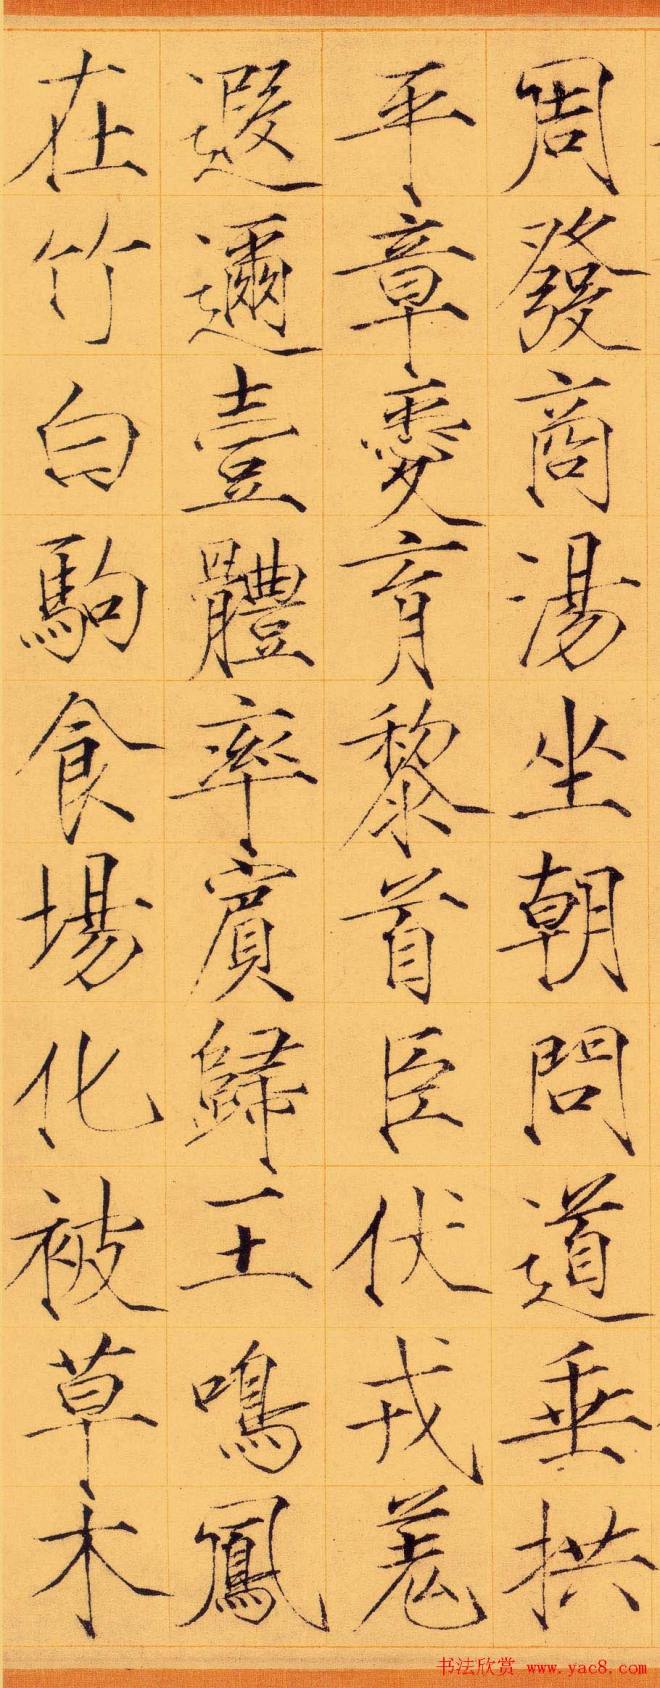 周發商湯坐朝問道垂拱
平章愛育黎首臣伏戎羌
遐邇壹體率賓歸王鳴鳳
在竹白駒食場化被草木
书法欣赏 www.yac8.com